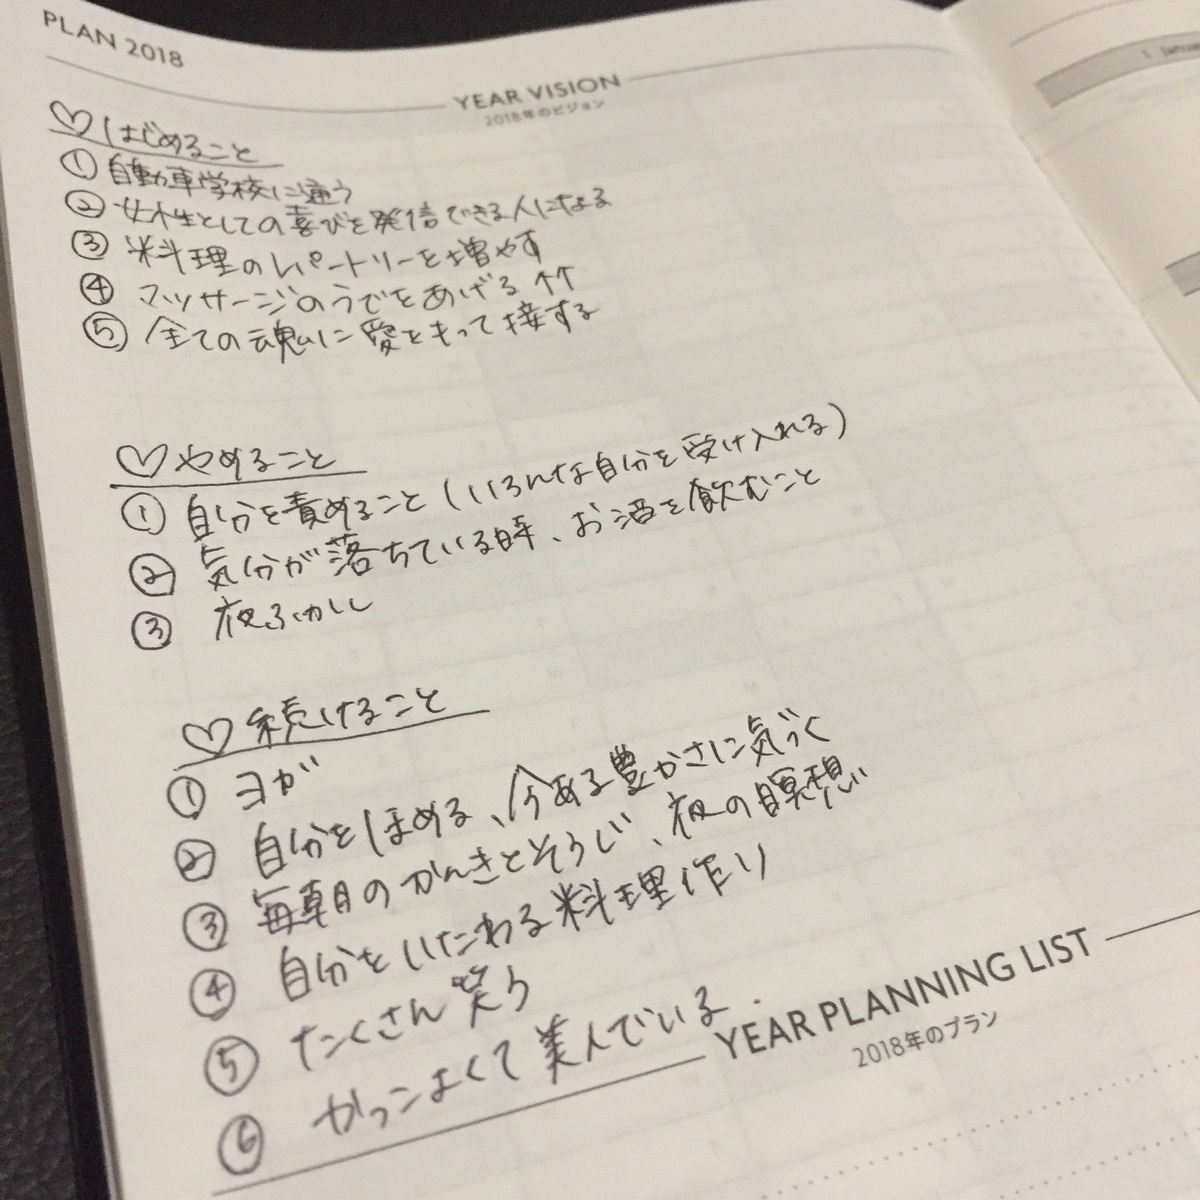 PLAN 2018
YEAR VISION
2018年のビジョン
♡はじめること
① 自動車学校に通う
② 女性としての喜びを発信できる人になる
③ 料理のレパートリーを増やす
④ マッサージのうでをあげる↑↑
⑤ 全ての魂に愛をもって接する
♡やめること
① 自分を責めること(いろんな自分を受け入れる)
② 気分が落ちている時、お酒を飲むこと
③ 夜ふかし
♡続けること
① ヨガ
② 自分をほめる、今ある豊かさに気づく
③ 毎朝のかんきとそうじ、夜の瞑想
④ 自分をいたわる料理作り
⑤ たくさん笑う
⑥ かっこよくて美人でいる.
YEAR PLANNING LIST
2018年のプラン